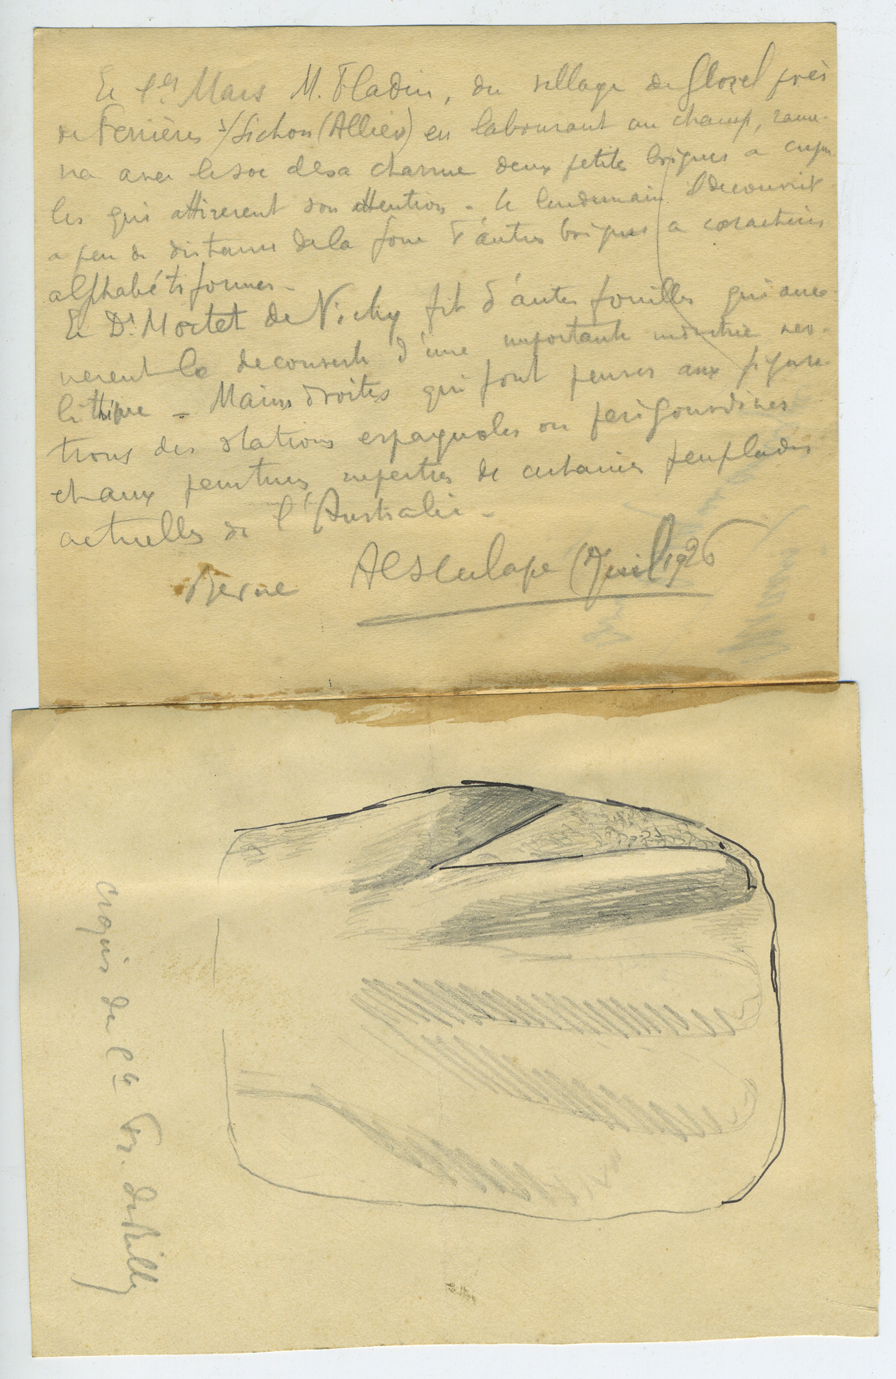 Le 1er Mars M. Fladin, du village de Glozel près
de Ferrières s/Sichon (Allier) en labourant un champ, rame-
na avec le soc de sa charrue deux petites briques a cupu
les qui attirerent son attention - le lendemain il decouvrit
a peu de distance de la fosse d'autres briques a caractères
alphabétiformes -
Le Dr Mortet de Vichy fit d'autres fouilles qui ame-
nerent la decouverte d'une importante industrie neo-
lithique - Mains droites qui font penser aux figura
tions des stations espagnoles ou perigourdines
et aux peintures rupestres de certaines peuplades
actuelles de l'Australie -
Revue Aesculape (Juil 1926
croquis du Cte Fr. de Rilly